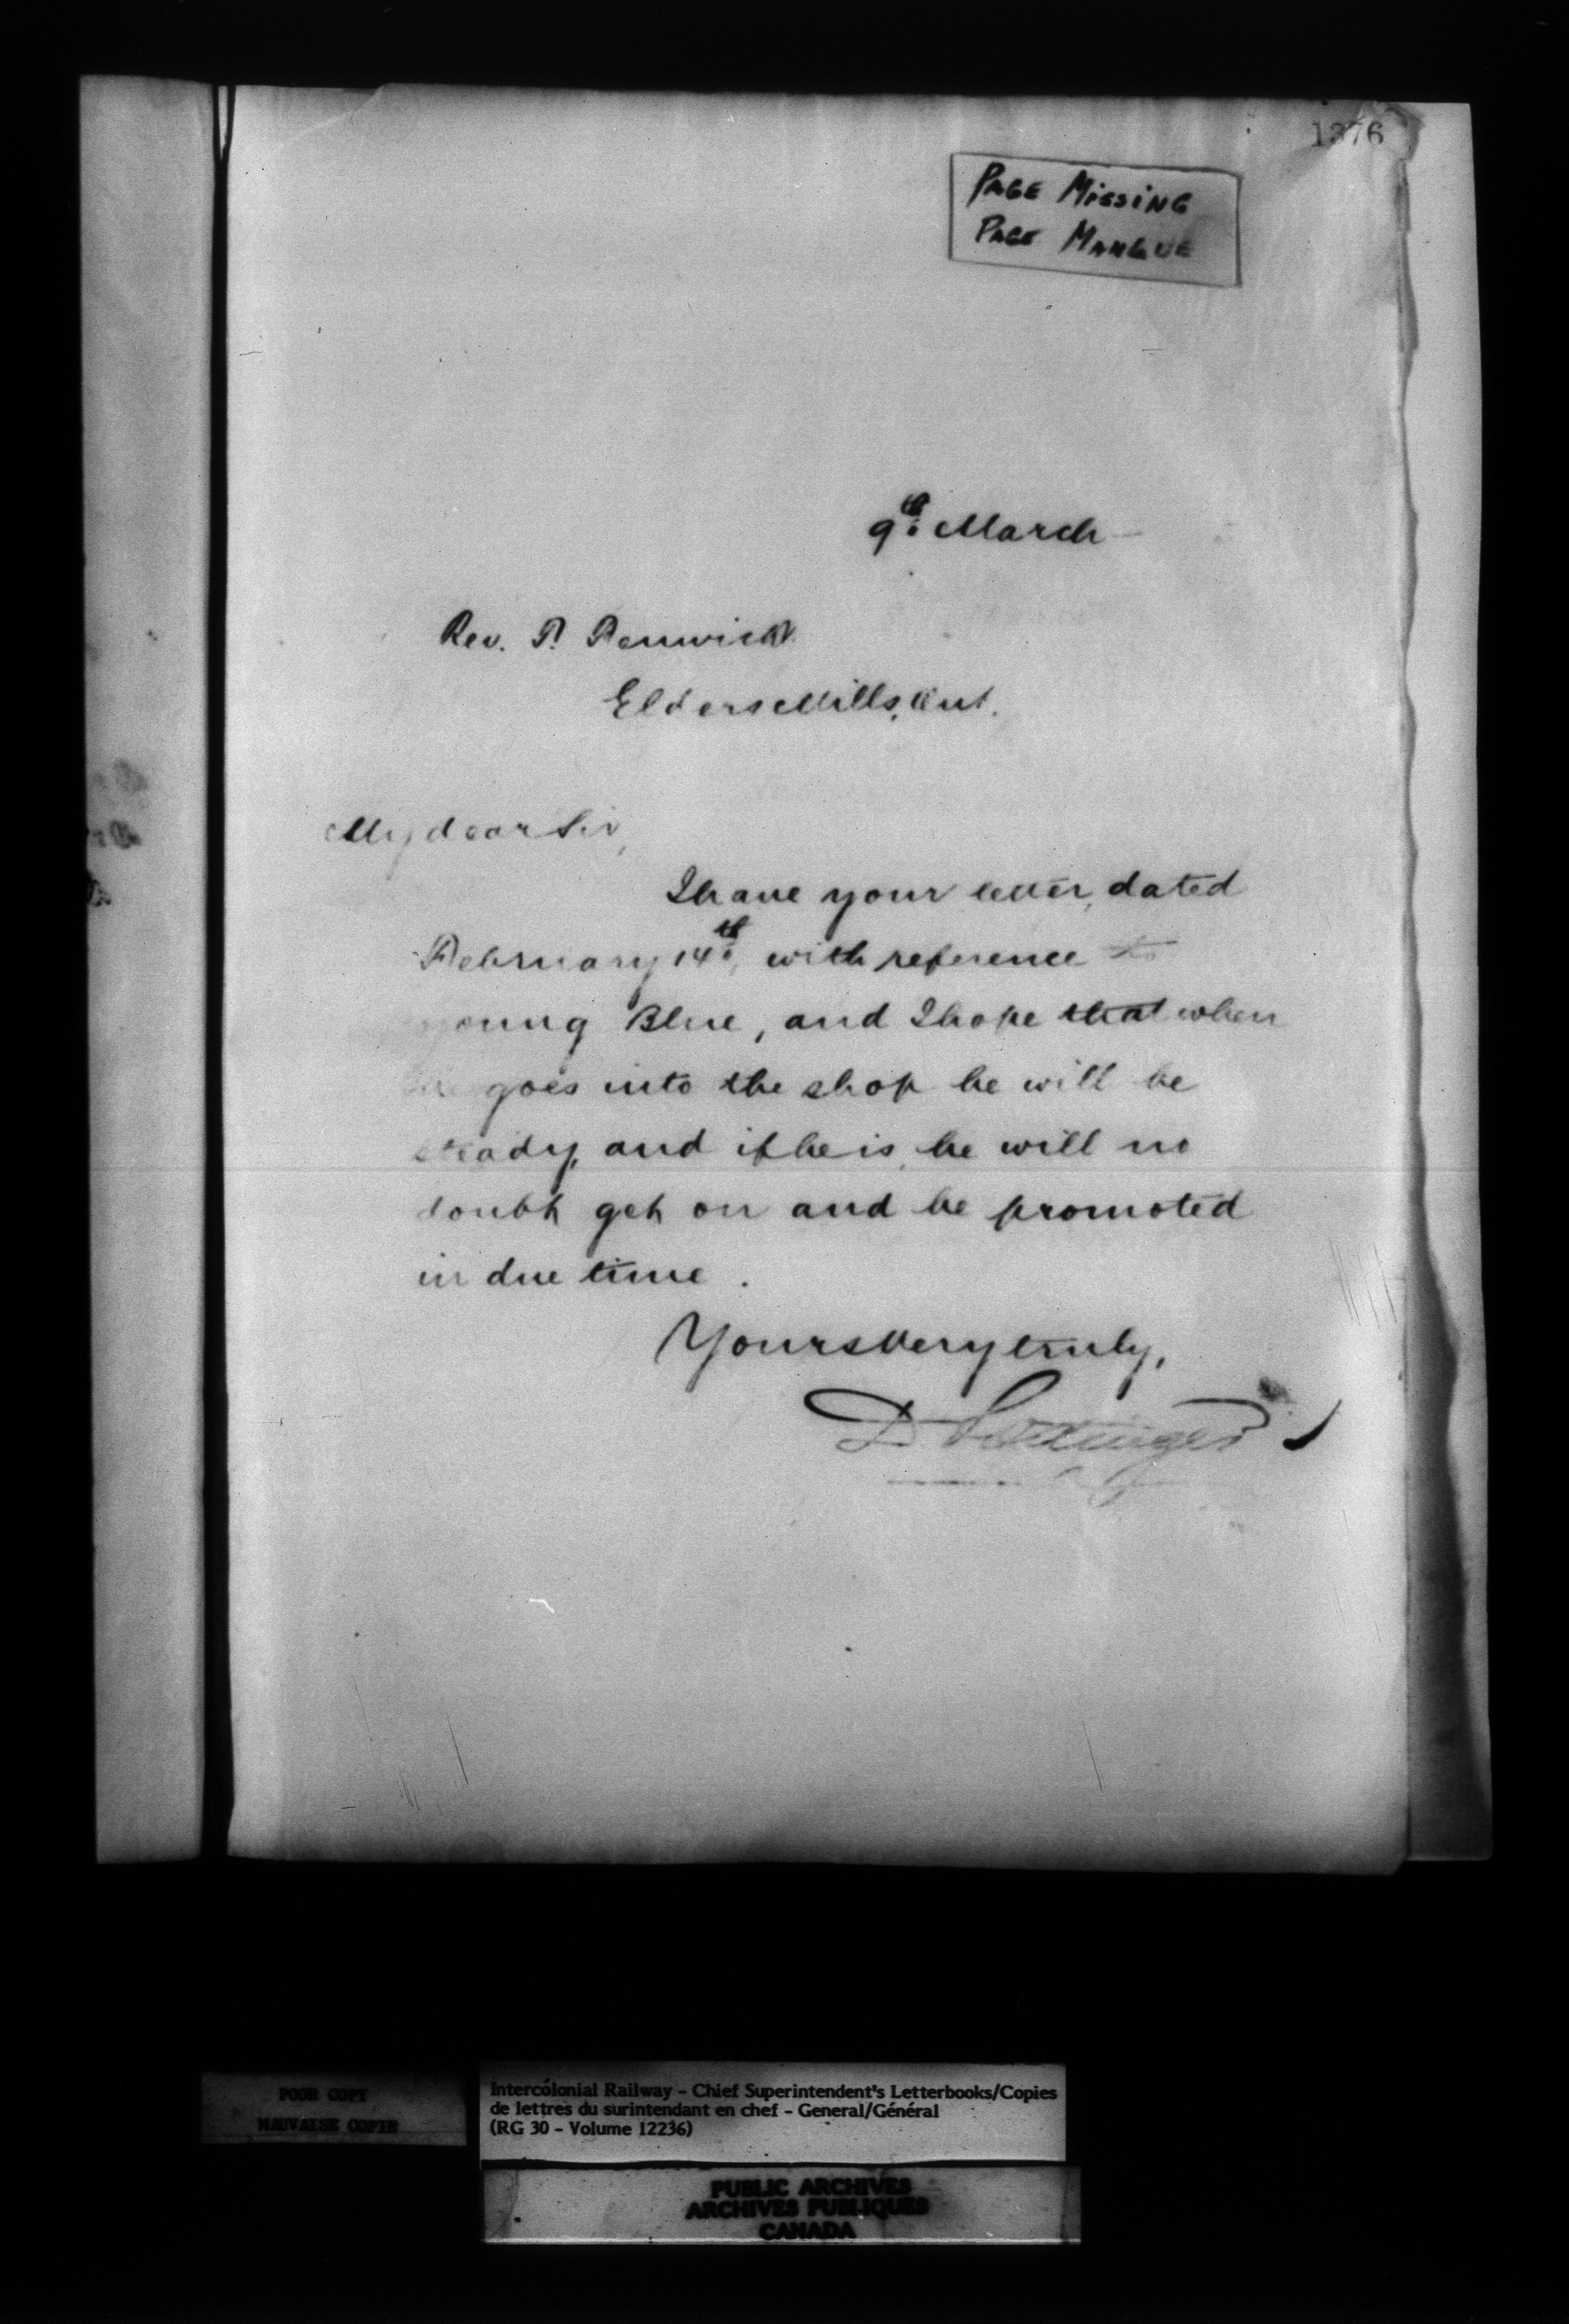 1376
PAGE MISSING
PAGE MANQUE
9th March
Rev. P. Fenwick
Elders Mills, Ont.
My dear Sir,
I have your letter, dated
February 14th, with reference to
young Blue, and I hope that when
he goes into the shop he will be
steady, and if he is, he will no
doubt get on and be promoted
in due time.
Yours very truly,
D Pottinger
POOR COPY
MAUVAISE COPIE
Intercolonial Railway - Chief Superintendent's Letterbooks/Copies
de lettres du surintendant en chef - General/Général
(RG 30 - Volume 12236)
PUBLIC ARCHIVES
ARCHIVES PUBLIQUES
CANADA